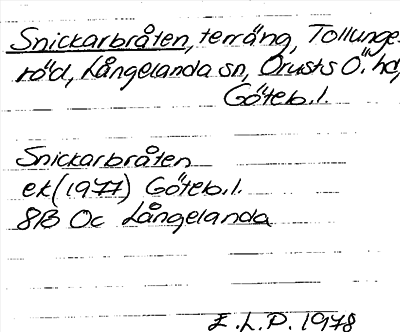 Snickarbråten, terräng, Tollunge-
röd, Långelanda sn, Orusts Ö. hd,
Göteb. l.
Snickarbråten
ek (1977) Göteb. l.
8B 0c Långelanda
E. L. P. 1978